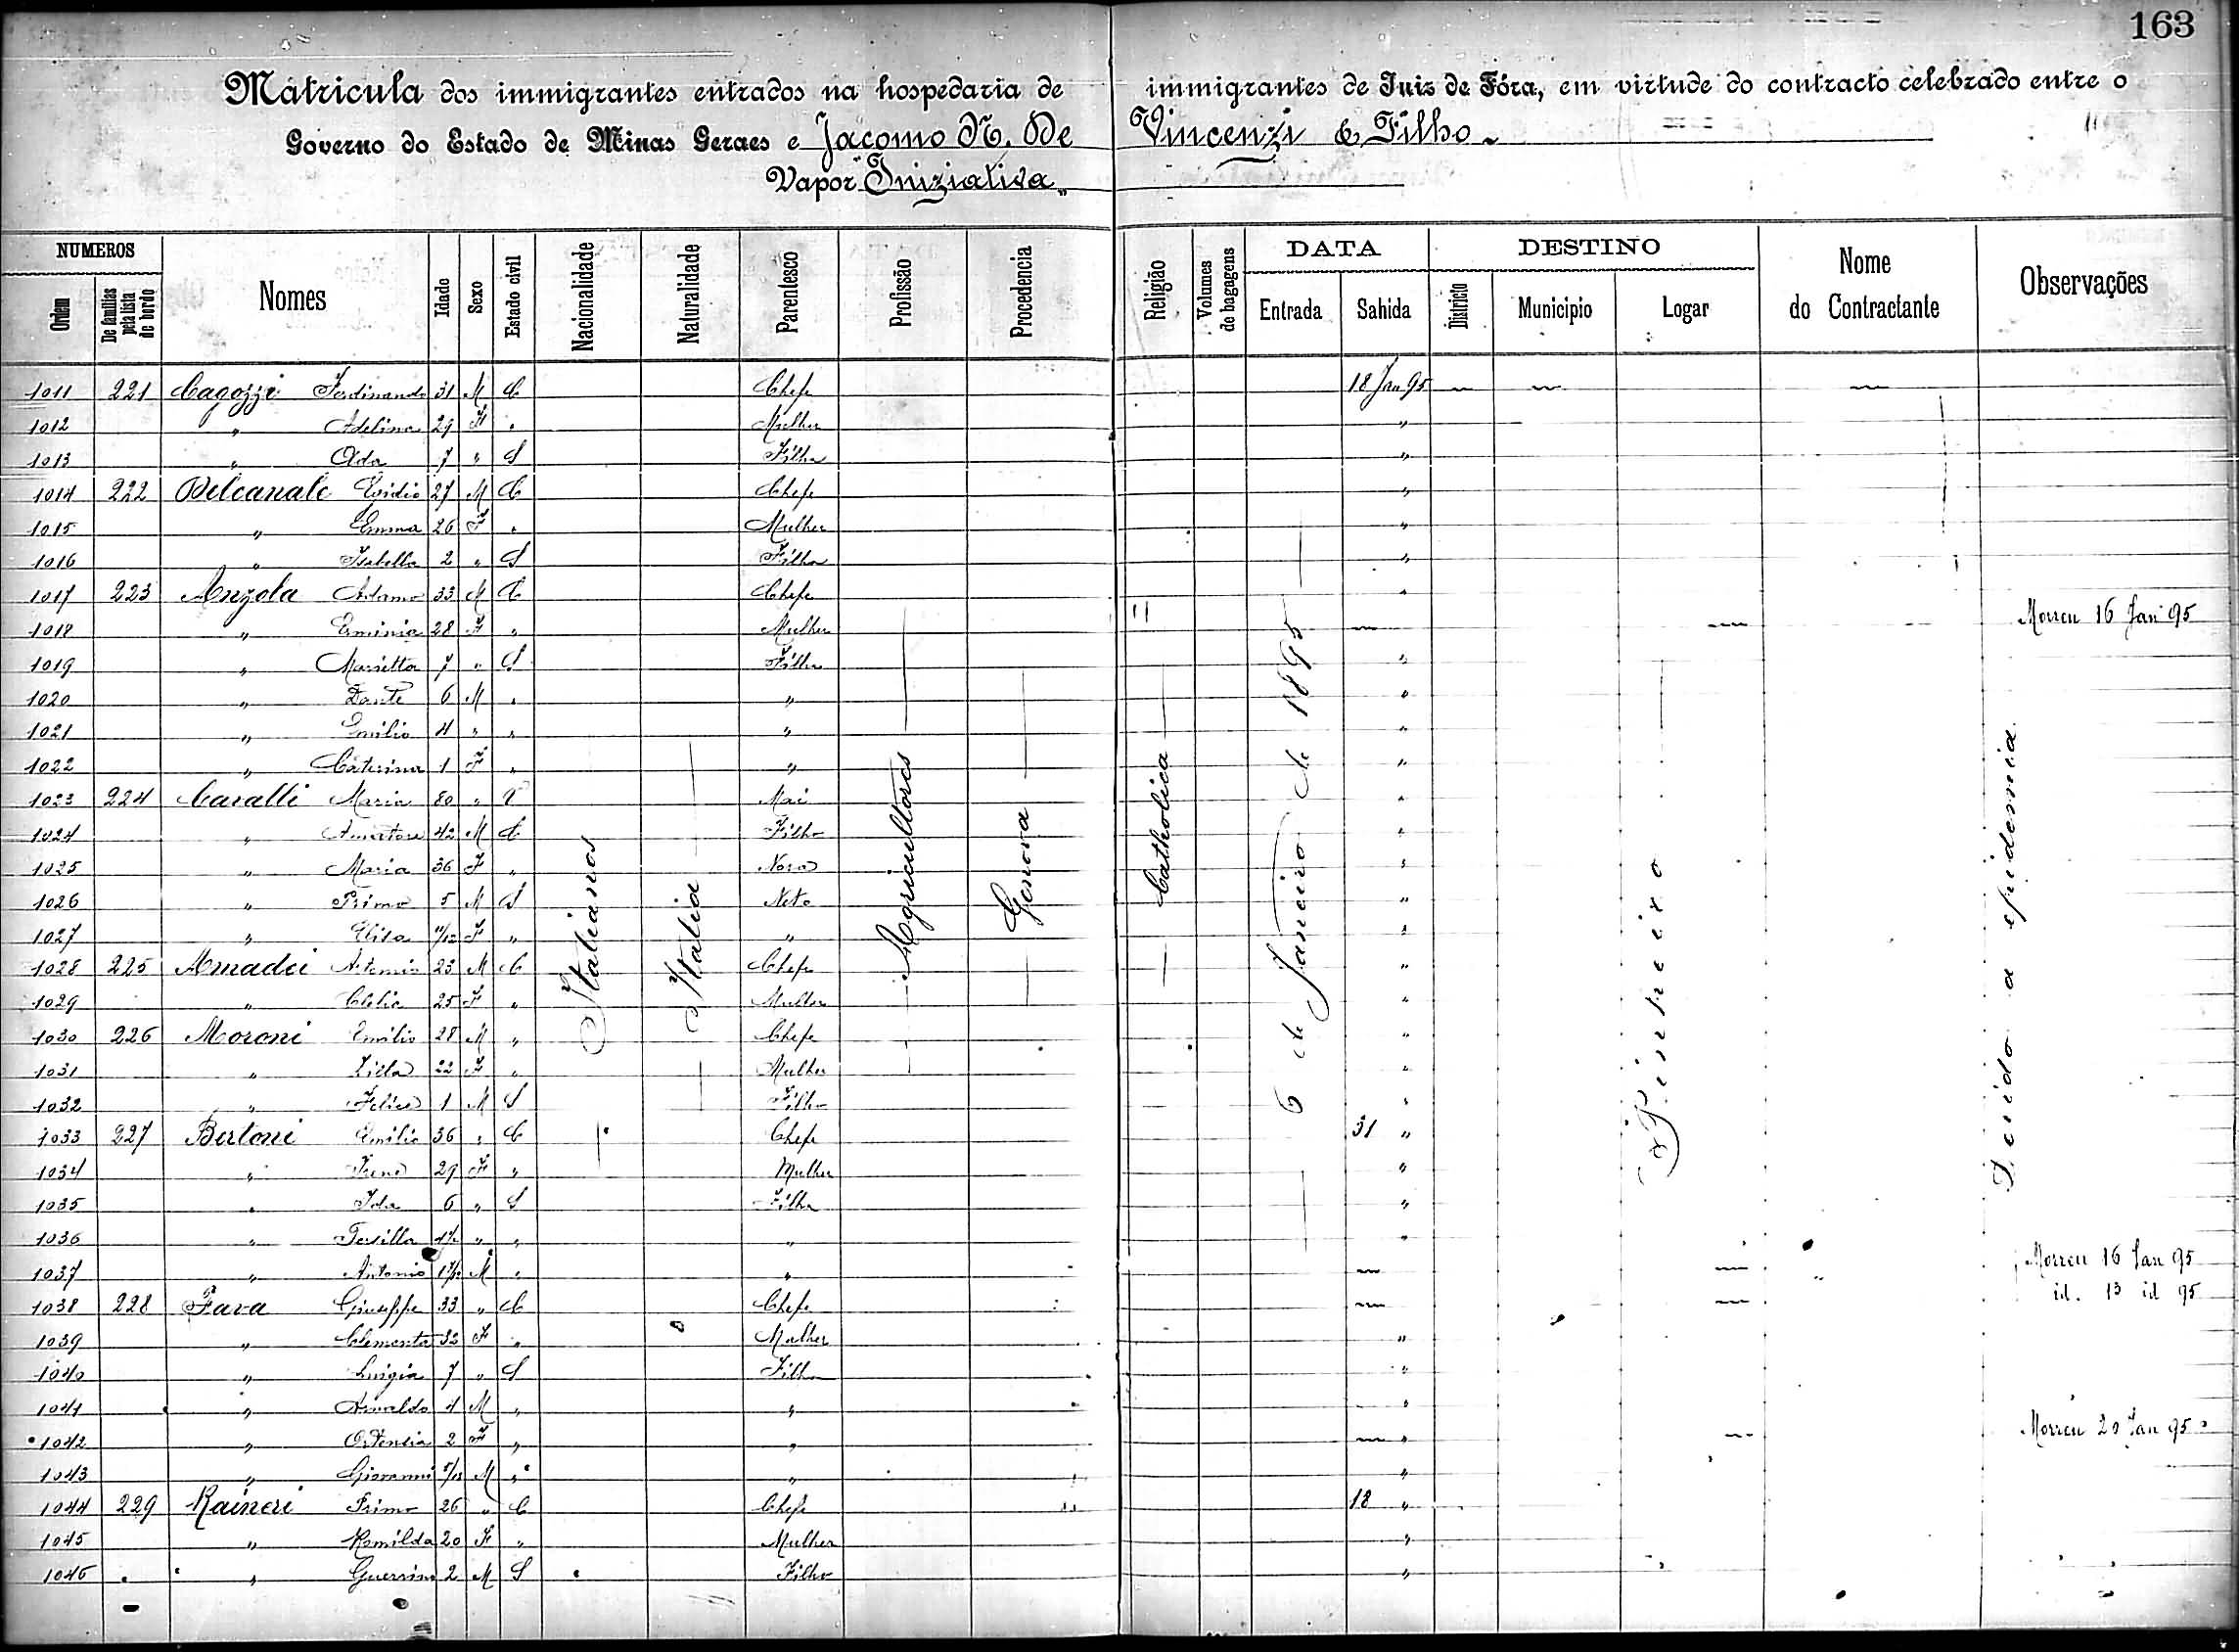 163
Matricula dos immigrantes entrados na hospedaria de immigrantes de Juis de Fóra, em virtude do contracto celebrado entre o
Governo do Estado de Minas Geraes e Jacomo N. De Vincenzi & Filho
Vapor "Iniziativa"
NUMEROS DATA DESTINO
Ordem De familias pela lista de bordo Nomes Idade Sexo Estado civil Nacionalidade Naturalidade Parentesco Profissão Procedencia Religião Volumes de bagagens Entrada Sahida Districto Municipio Logar Nome do Contractante Observações
1011 221 Cagozzi Ferdinando 31 M C Chefe 18 Jan 95 — — —
1012 " Adelina 29 F " Mulher "
1013 " Alda 7 " S Filha "
1014 222 Delcanale 27 M C Chefe "
1015 " Emma 26 F " Mulher "
1016 " Isabella 2 " S Filha "
1017 223 Anzola Adamo 33 M C Chefe "
1018 " Erminia 28 F " Mulher — — Morreu 16 Jan 95
1019 " Marietta 7 " S Filha "
1020 " Dante 6 M " " "
1021 " Emilio 4 " " " "
1022 " Caterina 1 F " " "
1023 224 Cavalli Maria 80 " V Mai "
1024 " 42 M C Filho "
1025 " Maria 36 F " Nora "
1026 " Primo 5 M S Neto "
1027 " Elisa 11/12 F " " "
1028 225 Amadei Artemio 23 M C Chefe "
1029 " Clelia 25 F " Mulher "
1030 226 Moroni Emilio 28 M " Chefe "
1031 " 22 F " Mulher "
1032 " Felice 1 M S Filho "
1033 227 Bertoni Emilio 36 " C Chefe 31 "
1034 " Irene 29 F " Mulher "
1035 " Ida 6 " S Filha "
1036 " " " " "
1037 " Antonio M " " — — Morreu 16 Jan 95
1038 228 Fava Giuseppe 33 " C Chefe — — id. 13 id 95
1039 " Clementa 32 F " Mulher "
1040 " Luigia 7 " S Filha "
1041 " Arnaldo 4 M " " "
1042 " Ortensia 2 F " " — " — Morreu 20 Jan 95
1043 " Giovanni M " " "
1044 229 Raineri Primo 26 " C Chefe 18 "
1045 " Romilda 20 F " Mulher "
1046 " Guerrino 2 M S Filho "
Italianos
Italia
Agricultores
Genova
Catholica
6 de Janeiro de 1895
Pinheiro
Devido a epidemia